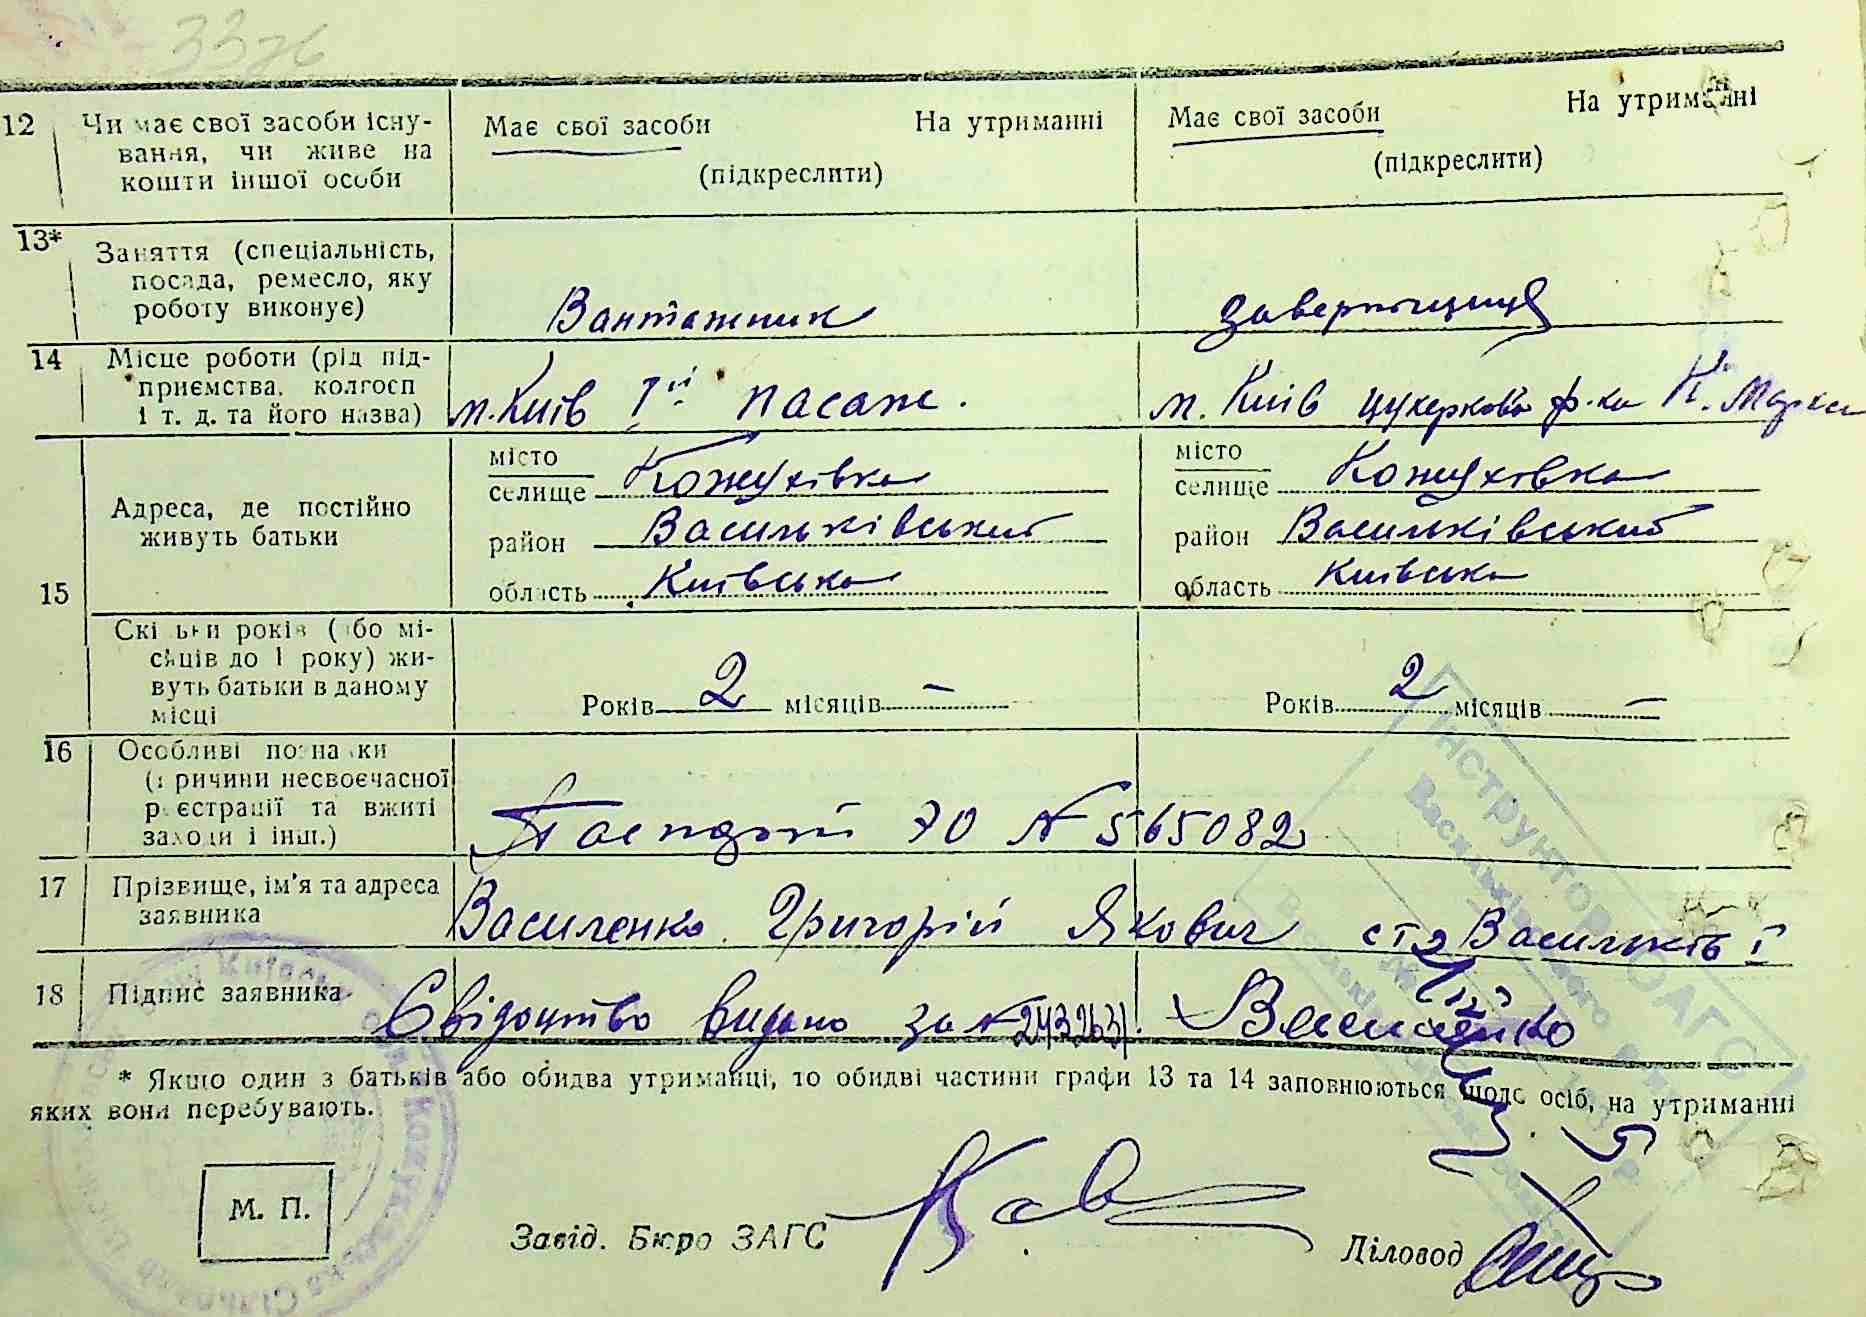 3376
12 Чи має свої засоби існу-
вання, чи живе на
кошти іншої особи
Має свої засоби На утриманні
(підкреслити)
Має свої засоби На утриманні
(підкреслити)
13* Заняття (спеціальність,
посада, ремесло, яку
роботу виконує)
Вантажник
завертчиця
14 Місце роботи (рід під-
приємства, колгосп
і т. д. та його назва)
м. Київ 1й пасаж.
м. Київ цукеркова ф-ка К. Маркса
15 Адреса, де постійно
живуть батьки
місто
селище Кожухівка
район Васильківський
область Київська
місто
селище Кожухівка
район Васильківський
область Київська
Скільки років (або мі-
сяців до 1 року) жи-
вуть батьки в даному
місці
Років 2 місяців –
Років 2 місяців –
16 Особливі позначки
(причини несвоєчасної
реєстрації та вжиті
заходи і інш.)
Паспорт № 565082
17 Прізвище, ім'я та адреса
заявника
Василенко Григорій Якович ст. Васильків I
18 Підпис заявника
Свідоцтво видано за № Василенко
* Якщо один з батьків або обидва утриманці, то обидві частини графи 13 та 14 заповнюються щодо осіб, на утриманні
яких вони перебувають.
М. П.
Завід. Бюро ЗАГС
Діловод
Інструктор ОАГС
Васильківського